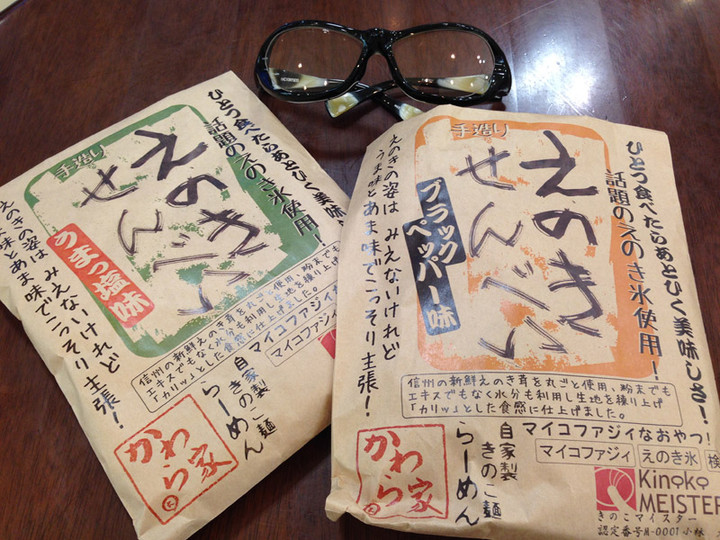 ひとつ食べたらあとひく美味し
話題のえのき氷使用！
手造り
えのき
せんべい
うまっ塩味
えのきの姿は みえないけれど
味とあま味でこっそり主張！
信州の新鮮えのき茸を丸ごと使用、粉末
エキスでもなく水分も利用し生地を練り上げ
「カリッ」とした食感に仕上げました。
マイコファジィ
マイコファジィ
自家製
きのこ麺
らーめん
かわら家
ひとつ食べたらあとひく美味しさ！
話題のえのき氷使用！
手造り
えのき
せんべい
ブラック
ペッパー味
えのきの姿は みえないけれど
うま味とあま味でこっそり主張！
信州の新鮮えのき茸を丸ごと使用、粉末でも
エキスでもなく水分も利用し生地を練り上げ
「カリッ」とした食感に仕上げました。
マイコファジィなおやつ！
マイコファジィ えのき氷 検
自家製
きのこ麺
らーめん
かわら家
Kinoko
MEISTER
きのこマイスター
認定番号M-0001小林